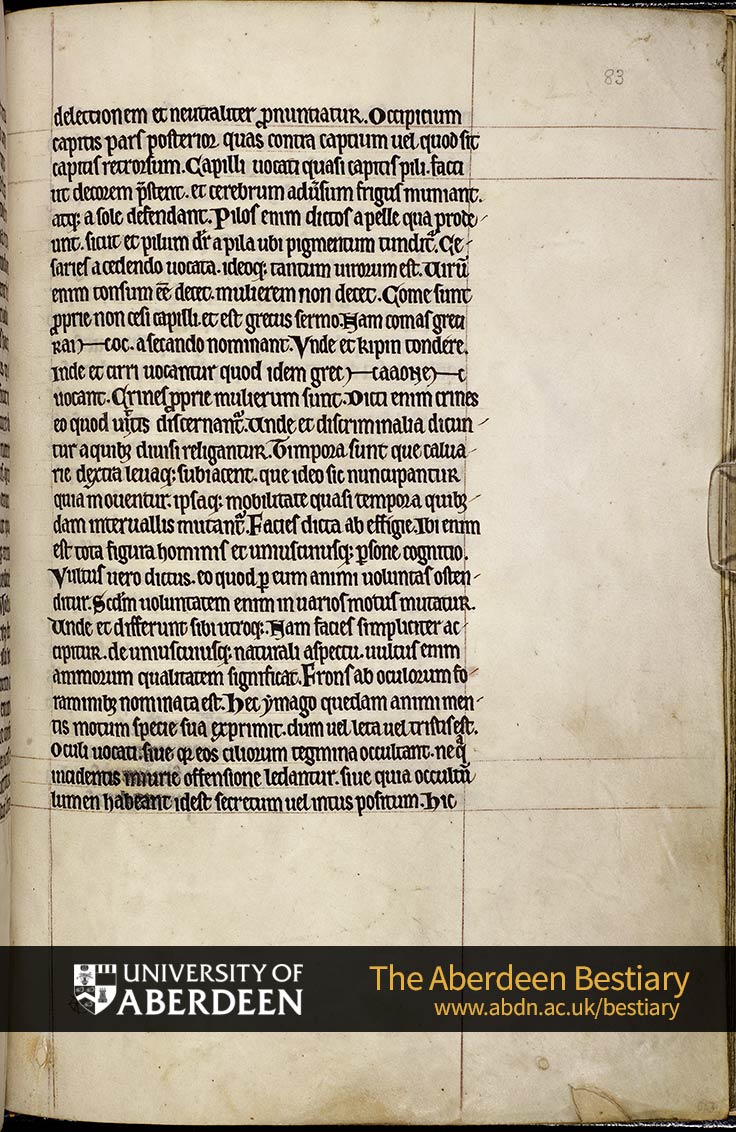 83
delectionem et neutraliter ꝓnuntiatur. Occipicium
capitis pars posterior quas contra capitium uel quod sit
capitis retrorsum. Capilli uocati quasi capitis pili. facti
ut decorem p̄stent. et cerebrum aduͥsum frigus muniant.
atq; a sole defendant. Pilos enim dictos a pelle qua prode
unt. sicut et pilum dr̄ a pila ubi pigmentum tundit᷑. Ce
saries a cedendo uocata. ideoq; tantum uirorum est. Uirū
enim tonsum eē decet. mulierem non decet. Come sunt
ꝓprie non cesi capilli. et est grecus sermo. Nam comas greci
kai)—coc. a secando nominant. Vnde et kipin tondere.
Inde et cirri uocantur quod idem greci )—caaone)—c
uocant. Crines ꝓprie mulierum sunt. Dicti enim crines
eo quod uittis discernant᷑. Unde et discriminalia dicun
tur a quibȝ diuisi religantur. Timpora sunt que calua
rie dextra leuaq; subiacent. que ideo sic nuncupantur
quia mouentur. ipsaq; mobilitate quasi tempora quibȝ
dam interuallis mutant᷑. Facies dicta ab effigie. Ibi enim
est tota figura hominis et uniuscuiusq; ꝑsone cognitio.
Vultus uero dictus. eo quod ꝑ eum animi uoluntas osten
ditur. Scdm̄ uoluntatem enim in uarios motus mutatur.
Unde et differunt sibi utroq;. Nam facies simpliciter ac
cipitur. de uniuscuiusq; naturali aspectu. uultus enim
animorum qualitatem significat. Frons ab oculorum fo
raminibȝ nominata est. Hec ymago quedam animi men
tis motum specie sua exprimit. dum uel leta uel tristis est.
Oculi uocati. siue qr eos ciliorum tegmina occultant. ne qͣ
incidentis iniurie offensione ledantur. siue quia occultū
lumen habeant idest secretum uel intus positum. Hic
UNIVERSITY OF
ABERDEEN
The Aberdeen Bestiary
www.abdn.ac.uk/bestiary